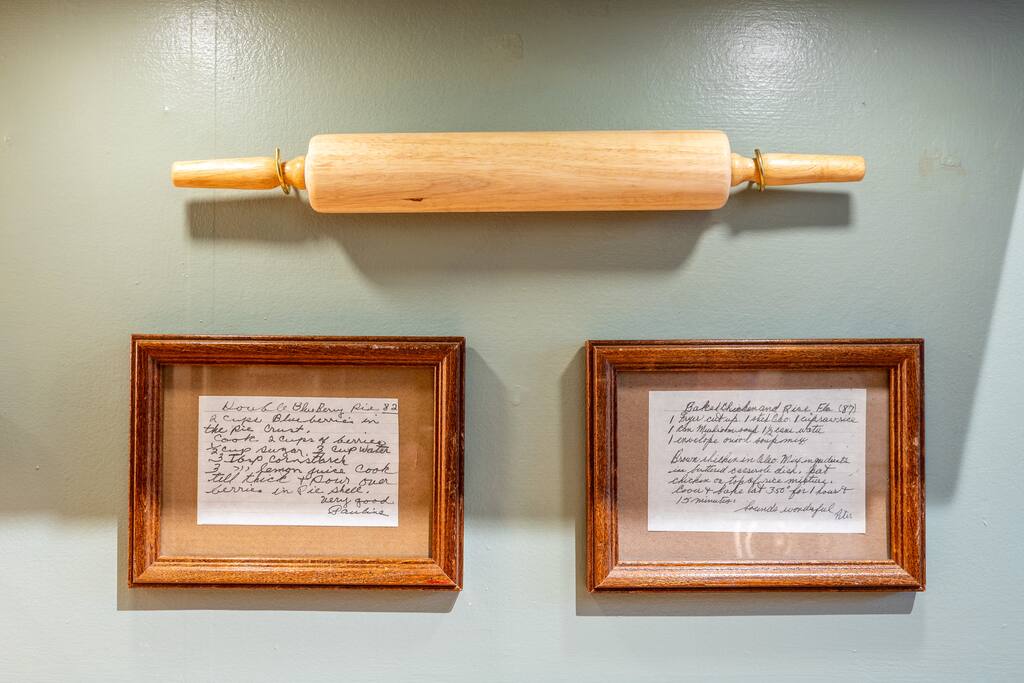 Double BlueBerry Pie 82
2 cups Blueberries in
the Pie Crust.
Cook 2 cups of berries
1/2 cup sugar, 1/2 cup water
3 Tbsp Cornstarch
3 " lemon juice Cook
till thick & Pour over
berries in Pie shell.
Very good
Pauline
Baked Chicken and Rice, Fla (87)
1 Fryer cut up. 1 stick Oleo 1 cup raw rice
1 Can Mushroom soup 1 1/2 cans water
1 envelope onion soup mix
Brown chicken in Oleo. Mix ingredients
in buttered casserole dish. Put
chicken on top of rice mixture.
Cover & bake at 350° for 1 hour &
15 minutes.
Sounds wonderful